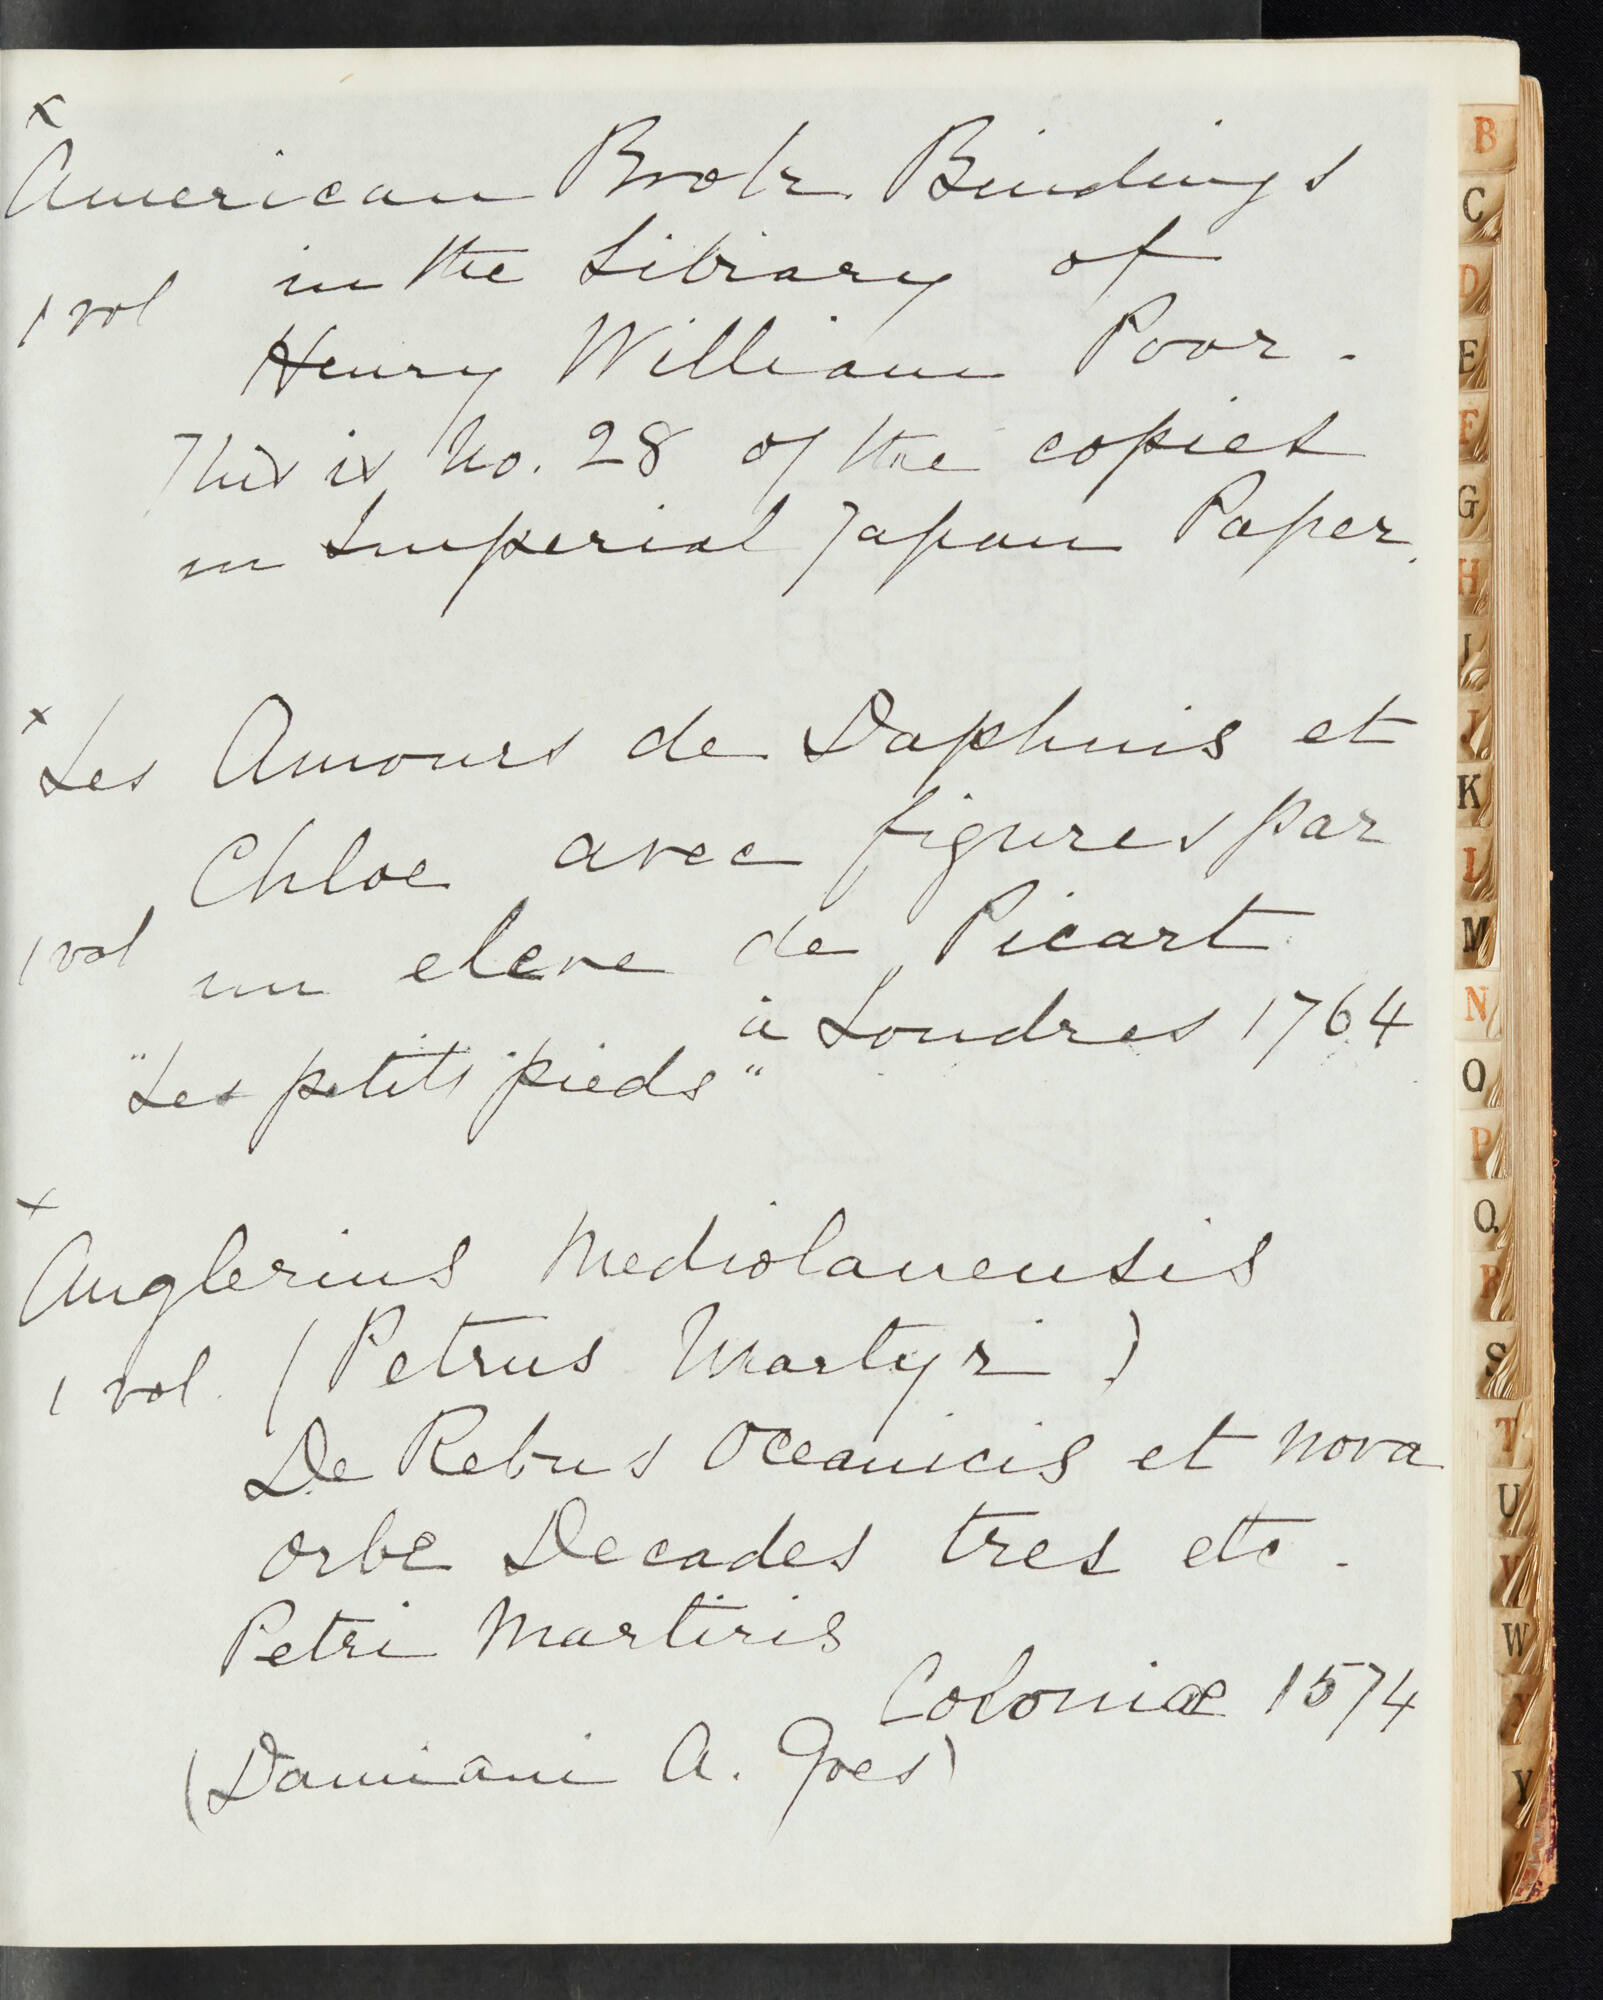 x
American Book Bindings
in the Library of
1 vol
Henry William Poor.
This is No. 28 of the copies
in Imperial Japan Paper.
x
Les Amours de Daphnis et
Chloe avec figures par
1 vol
un eleve de Picart
à Londres 1764
"Les petits pieds"
x
Anglerius Mediolanensis
1 vol. (Petrus Martyr)
De Rebus Oceanicis et Nova
orbe Decades tres etc.
Petri Martiris
Coloniæ 1574
(Damiani A. Goes)
B
C
D
E
F
G
H
I
J
K
L
M
N
O
P
Q
R
S
T
U
V
W
X
Y